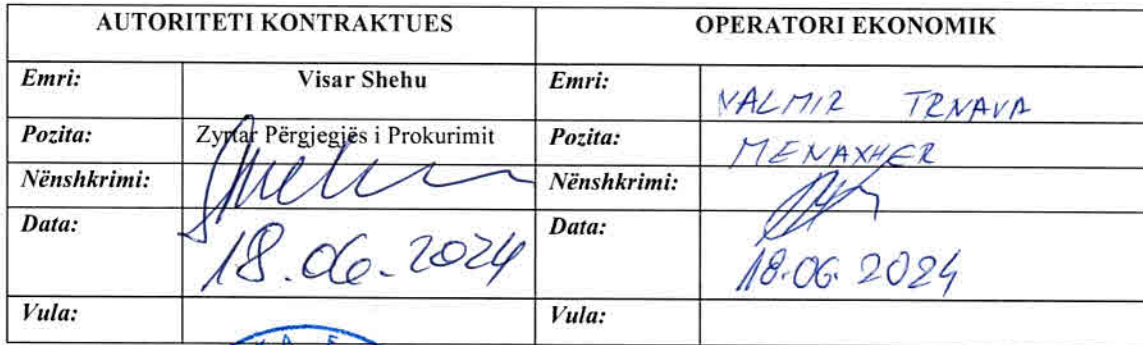 AUTORITETI KONTRAKTUES OPERATORI EKONOMIK
Emri: Visar Shehu Emri: VALMIR TRNAVA
Pozita: Zyrtar Përgjegjës i Prokurimit Pozita: MENAXHER
Nënshkrimi: Nënshkrimi:
Data: 18.06.2024 Data: 18.06.2024
Vula: Vula: